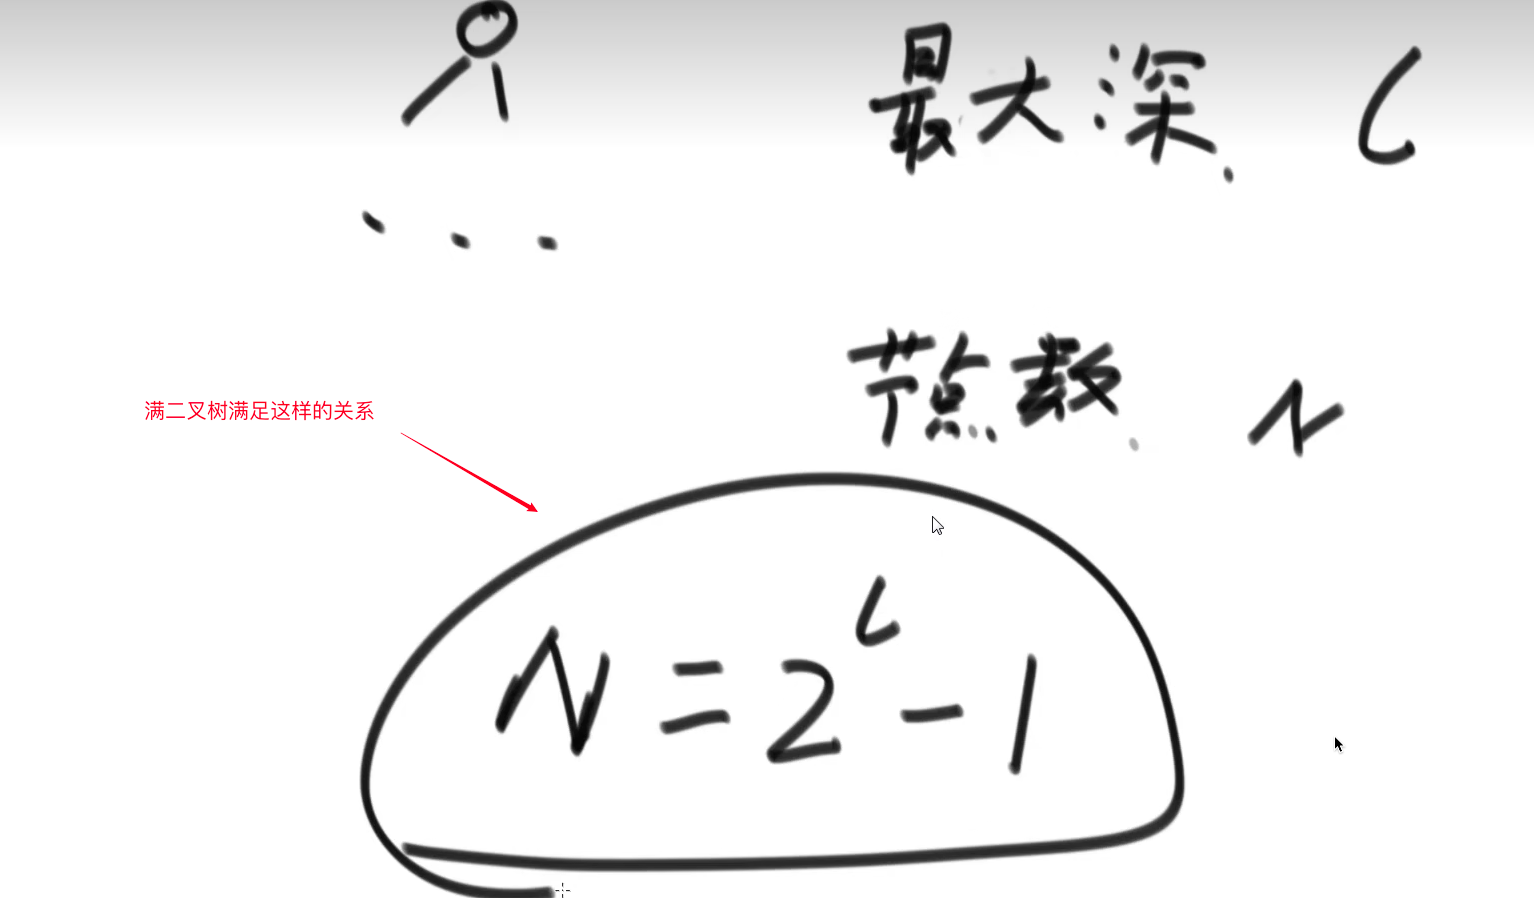 最大深 L
节点数 N
满二叉树满足这样的关系
N = 2^L - 1